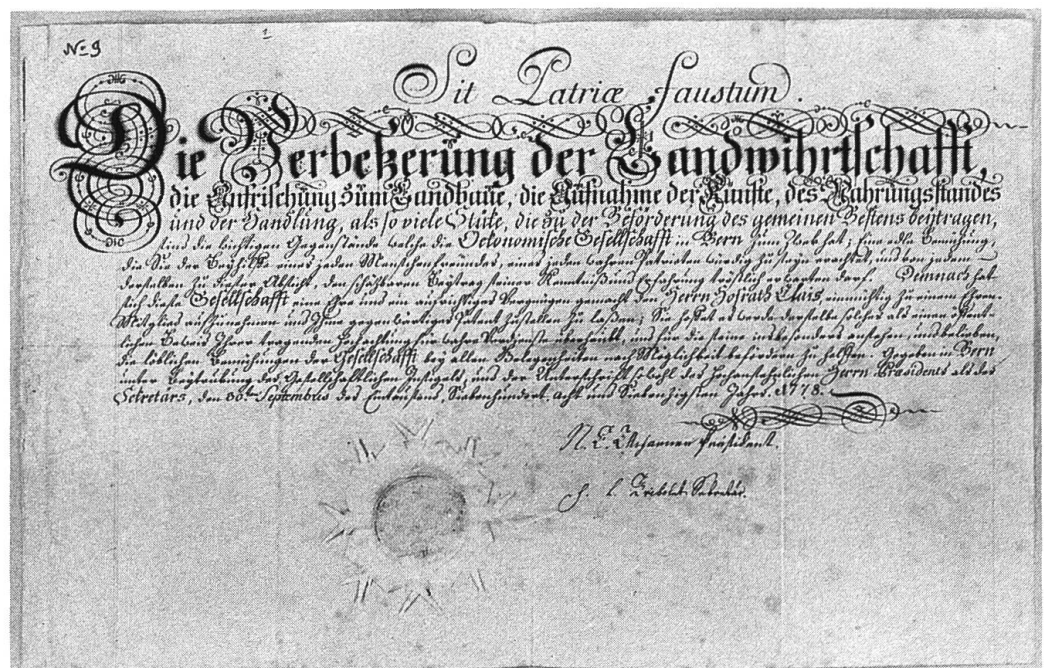 No 9
1
Sit Patriæ faustum.
Die Verbeßerung der Landwihrtschafft,
die Anfrischung zum Landbaue, die Aufnahme der Künste, des Nahrungsstandes
und der Handlung, als so viele Stüke, die zu der Beförderung des gemeinen Bestens beytragen,
sind die wichtigen Gegenstände welche die Oeconomische Gesellschafft in Bern zum Zwek hat; Eine edle Bemühung,
die Sie der Beyhülfe eines jeden Menschenfreundes, eines jeden wahren Patrioten würdig zu seyn erachtet, und von jedem
derselben zu dieser Absicht, den schätzbaren Beytrag seiner Kenntniß und Erfahrung tröstlich erwarten darf. Demnach hat
sich diese Gesellschafft eine Ehre und ein aufrichtiges Vergnügen gemacht den Herrn Hofrath Clais, einmüthig zu einem Ehren-
Mitglied aufzunehmen und Ihme gegenwärtiges Patent zustellen zu laßen; Sie hoffet es werde derselbe solches als einen
lichen Beweis Ihrer tragenden Hochachtung für wahre Verdienste und für die seine insbesonders ansehen, und belieben,
die löblichen Bemühungen der Gesellschafft bey allen Gelegenheiten nach Möglichkeit befördern zu helffen. Gegeben in Bern
unter Beydrükung des Gesellschaftlichen Insigels, und der Unterschrifft sowohl des Herrn Präsidents als des
Sekretärs, den 30ten Septembris des Eintausend, Siebenhundert, acht und Siebenzigsten Jahrs. 1778.
N. E. Tscharner Präsident.
Tribolet Sekretär.